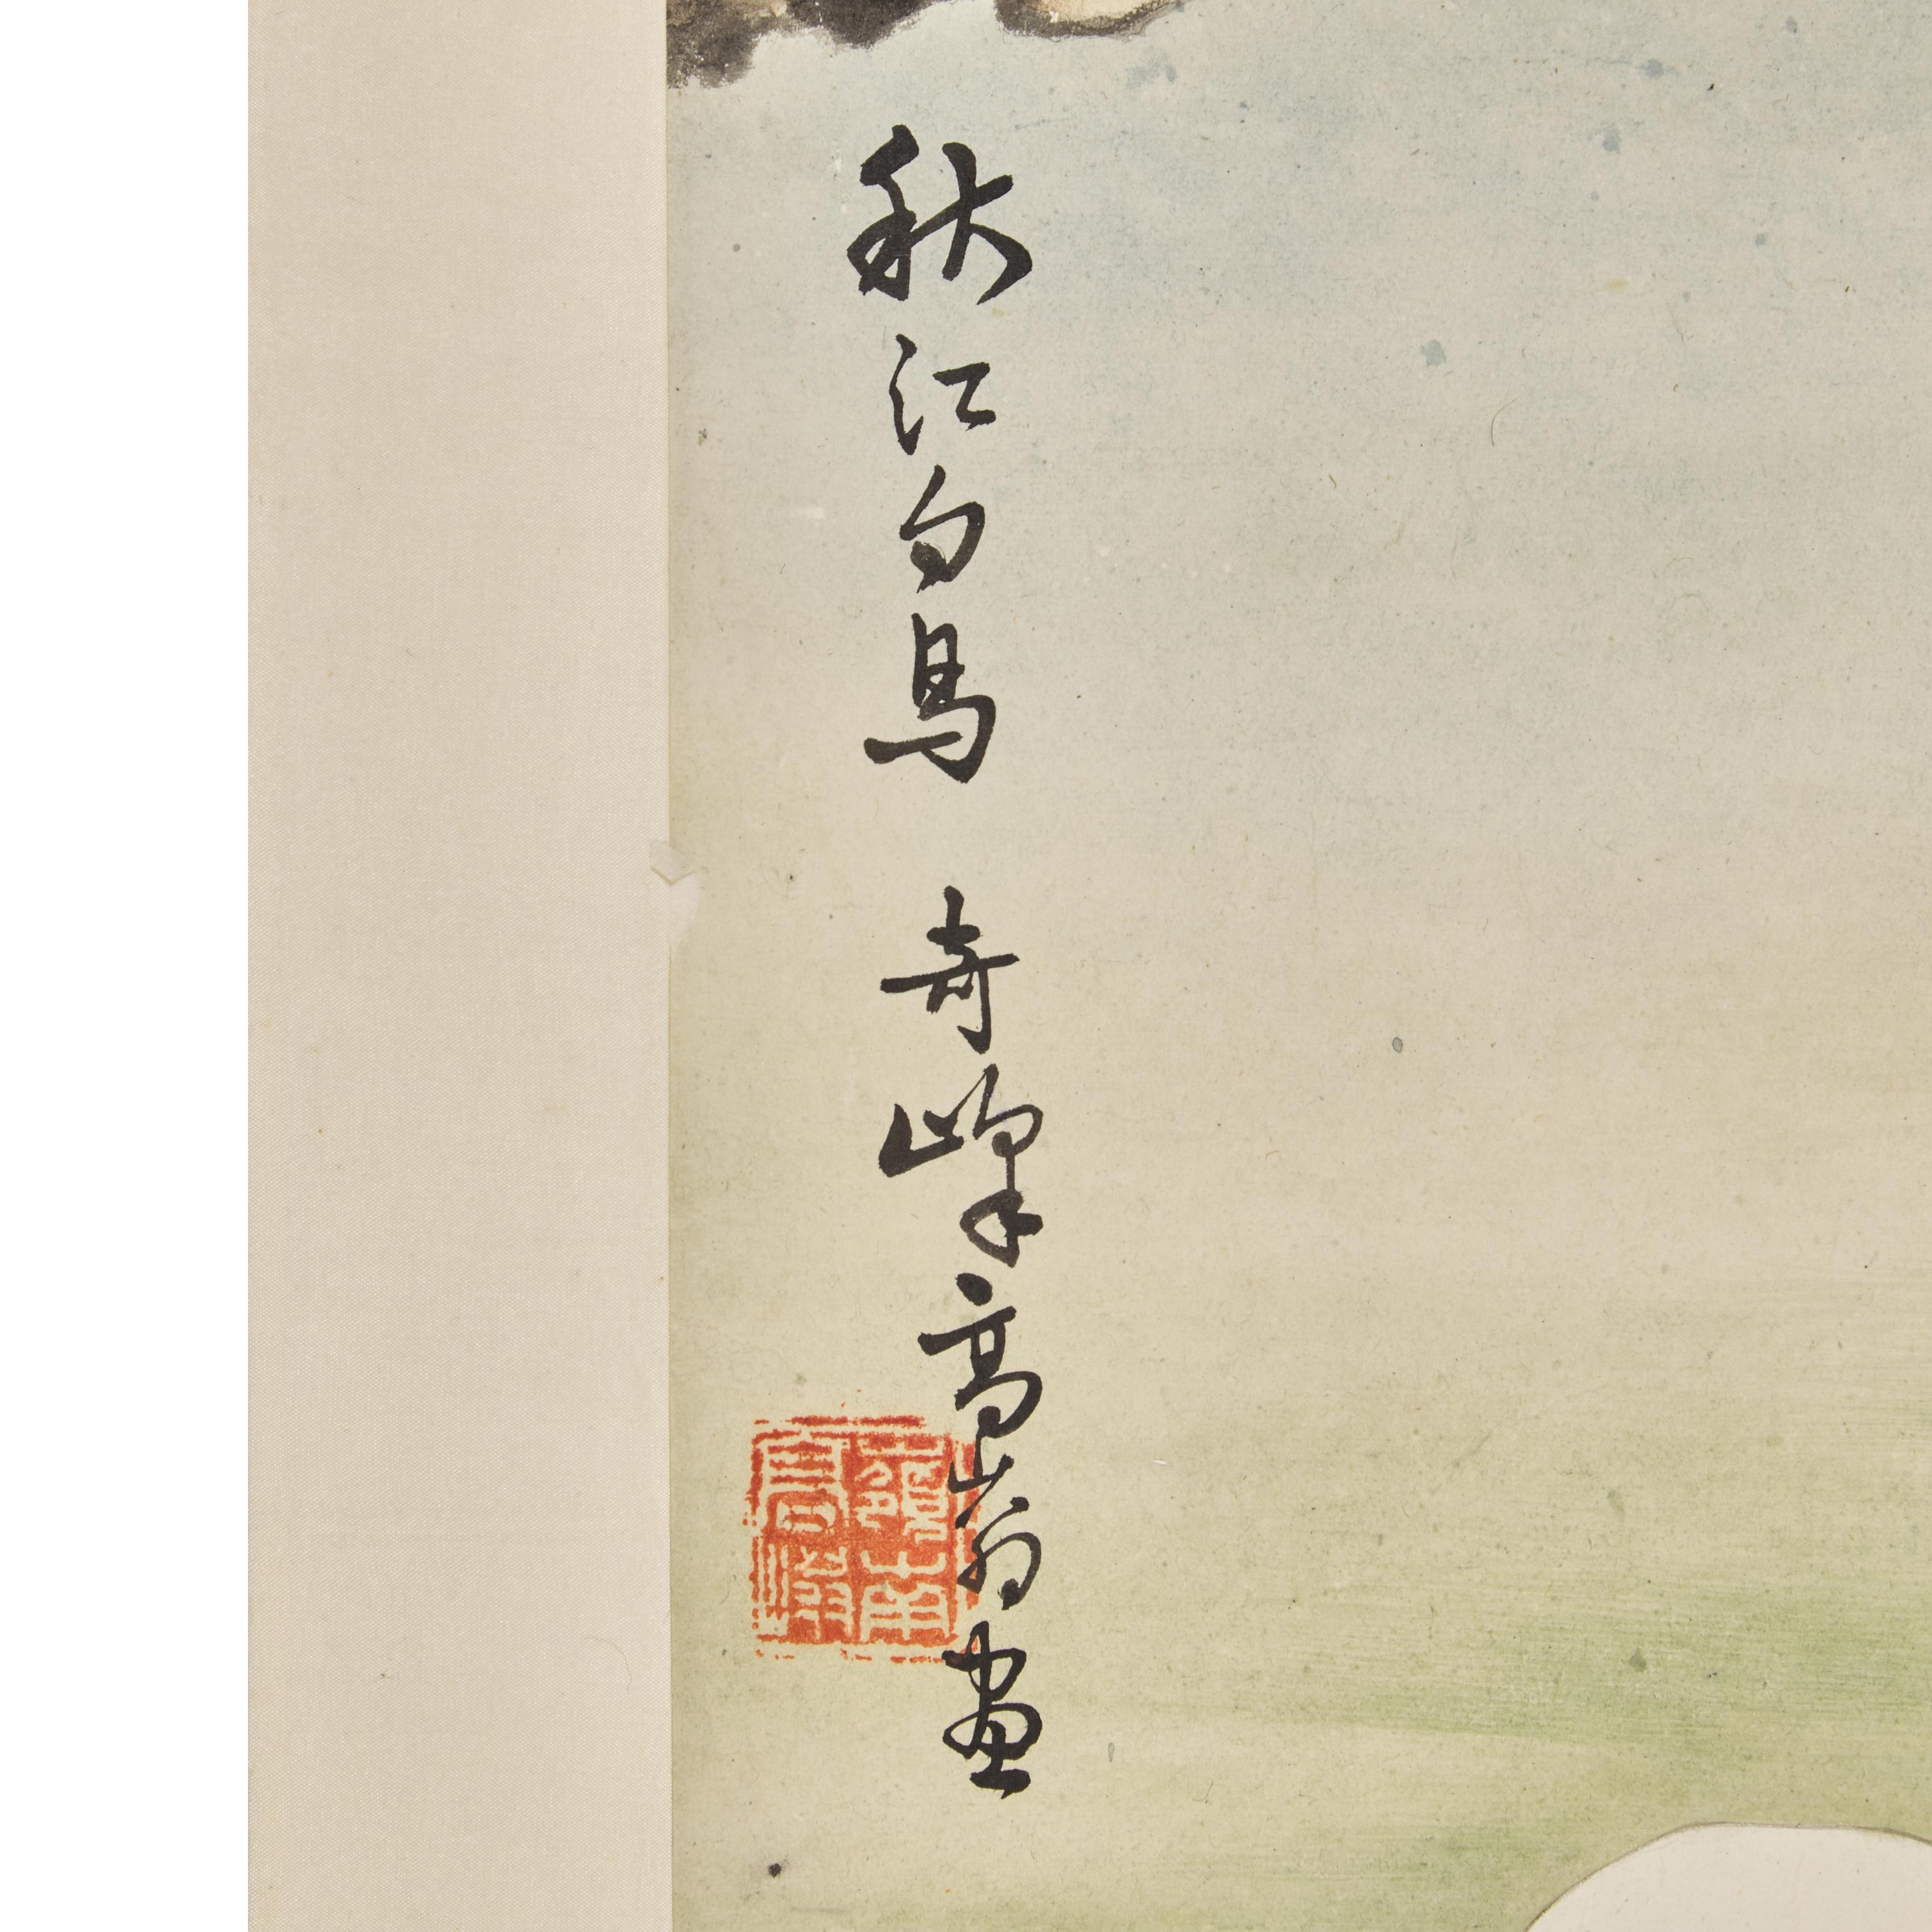 秋江白鳥 奇峰高嵡畫
嶺南
高